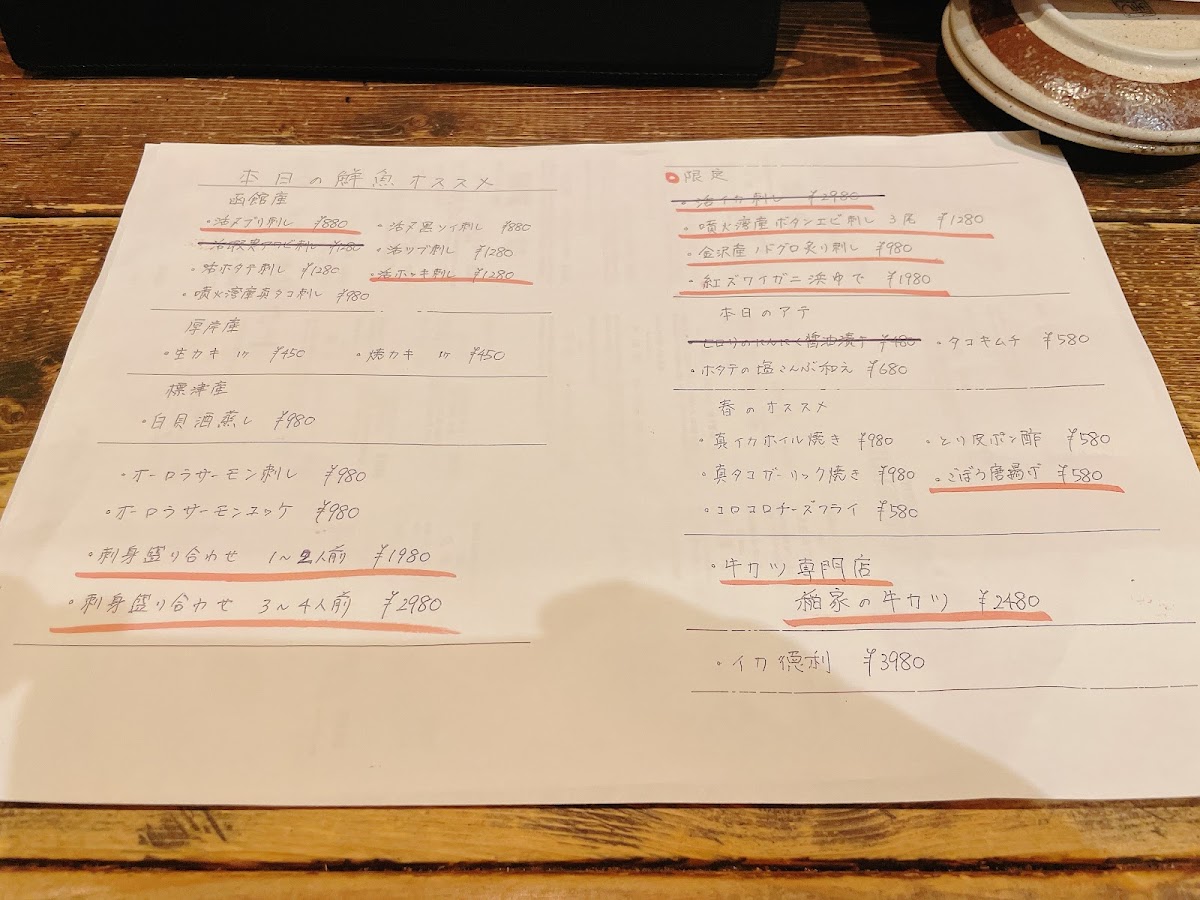 本日の鮮魚オススメ
函館産
・活〆ブリ刺し ¥880 ・活〆黒ソイ刺し ¥880
・活蝦夷アワビ刺し ¥1280 ・活ツブ刺し ¥1280
・活ホタテ刺し ¥1280 ・活ホッキ刺し ¥1280
・噴火湾産真タコ刺し ¥980
厚岸産
・生カキ 1ケ ¥450 ・焼カキ 1ケ ¥450
標津産
・白貝酒蒸し ¥980
・オーロラサーモン刺し ¥980
・オーロラサーモンユッケ ¥980
・刺身盛り合わせ 1〜2人前 ¥1980
・刺身盛り合わせ 3〜4人前 ¥2980
限定
・活イカ刺し ¥2980
・噴火湾産ボタンエビ刺し 3尾 ¥1280
・金沢産ノドグロ炙り刺し ¥980
・紅ズワイガニ浜ゆで ¥1980
本日のアテ
にんにく醤油漬け ¥480 ・タコキムチ ¥580
・ホタテの塩こんぶ和え ¥680
春のオススメ
・真イカホイル焼き ¥980 ・とり皮ポン酢 ¥580
・真タコガーリック焼き ¥980 ・ごぼう唐揚げ ¥580
・コロコロチーズフライ ¥580
・牛カツ専門店
の牛カツ ¥2480
・イカ徳利 ¥3980